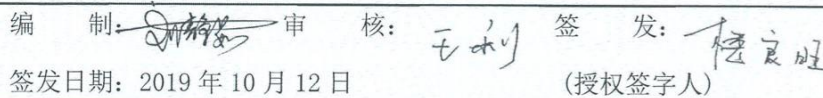 编 制: 审 核: 王利 签 发:
签发日期: 2019年10月12日 (授权签字人)